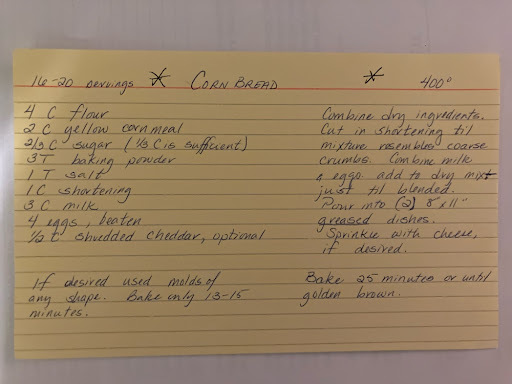 16-20 servings * CORN BREAD * 400°
4 C flour
2 C yellow cornmeal
2/3 C sugar (1/3 C is sufficient)
3 T baking powder
1 T salt
1 C shortening
3 C milk
4 eggs, beaten
1/2 C shredded cheddar, optional
If desired used molds of
any shape. Bake only 13-15
minutes.
Combine dry ingredients.
Cut in shortening til
mixture resembles coarse
crumbs. Combine milk
& eggs. add to dry mixt
just til blended.
Pour into (2) 8"x11"
greased dishes.
Sprinkle with cheese,
if desired.
Bake 25 minutes or until
golden brown.